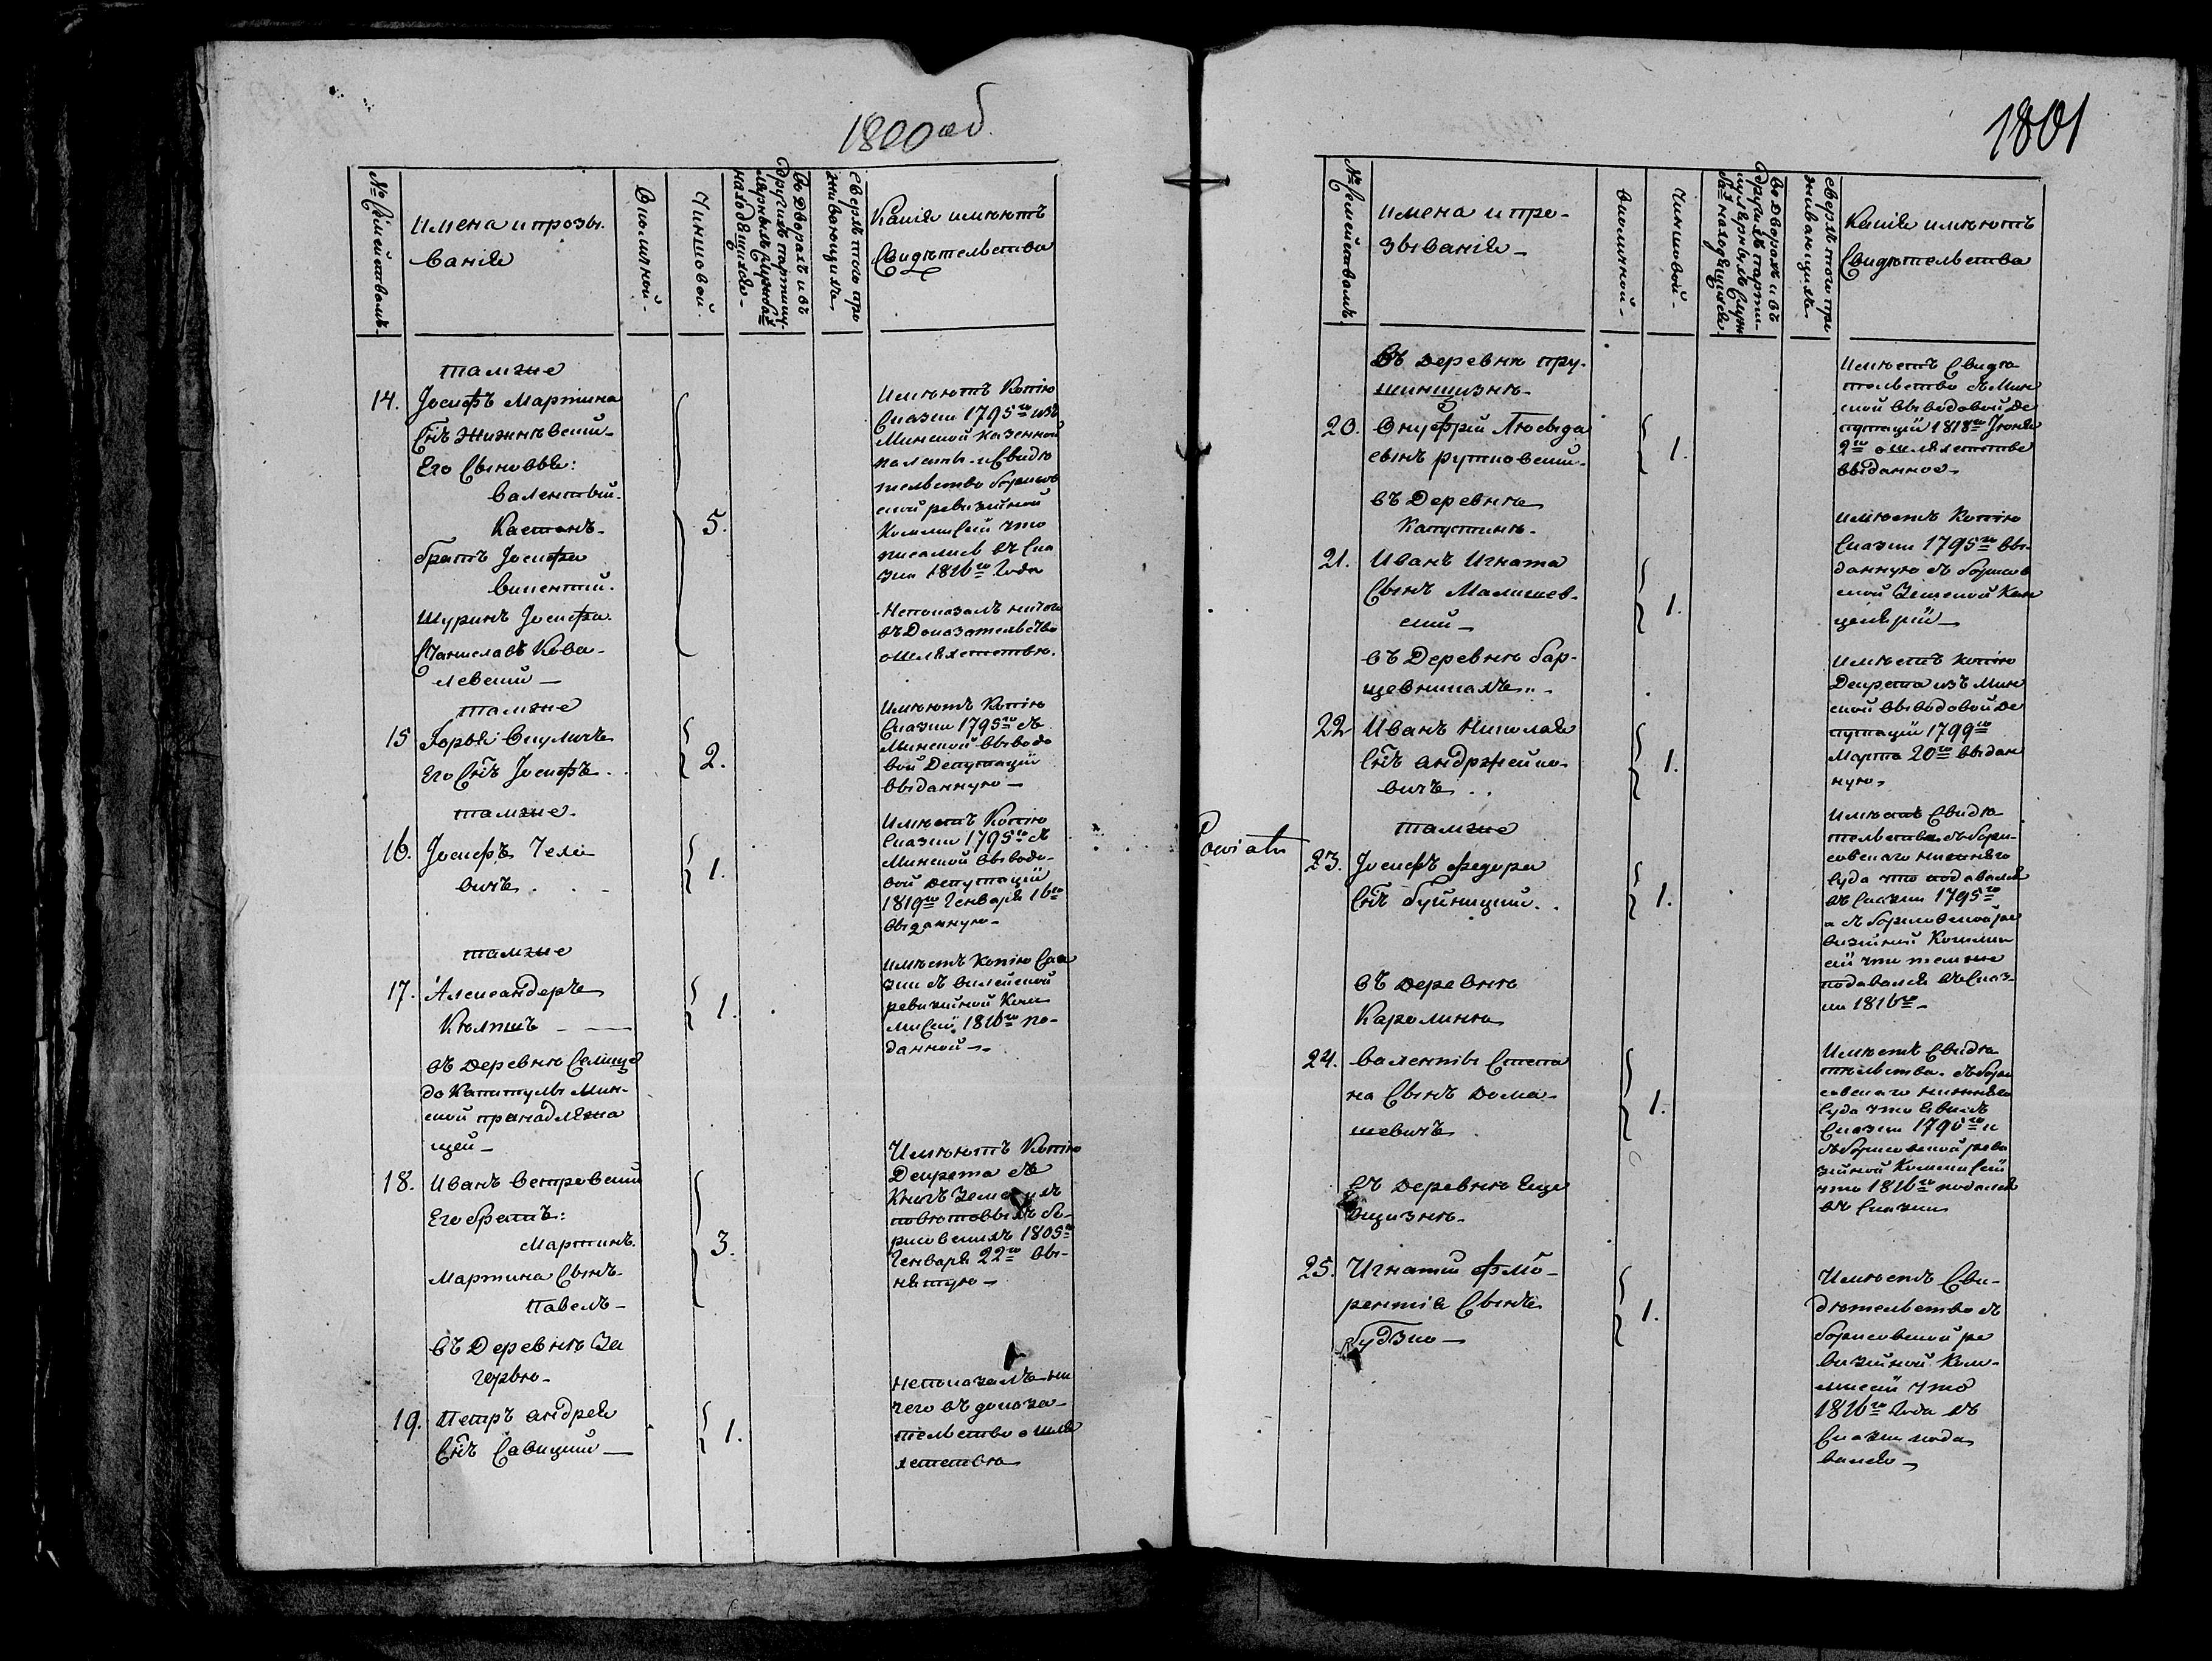 1800 об.
№ Семействамъ
Имена и прозы-
ванія
Околичной
Чиншовой
въ Дворахъ и въ
другихъ партику-
лярныхъ службахъ
находящихся
сверхъ того про
живающихъ
Какія имѣютъ
Свидѣтельства
тамже
14. Іосифъ Мартина
Снъ
Его Сыновья:
Валентый
Каетанъ
братъ Іосифа
Викентій
Шуринъ Іосифа
Станиславъ Кова-
левскій
5.
Имѣютъ Копію
Сказки 1795го изъ
Минской казенной
палаты и Свидѣ
тельство борисов
ской ревизійной
Коммисіи что
писались въ Ска
зки 1816го Года
Непоказалъ ничего
въ Доказательство
о шляхетствѣ
тамже
15 Юрья Викуличъ
Его Снъ Іосифъ
2.
Имѣютъ Копію
Сказки 1795го съ
Минской выводо
вой Депутаціи
выданную
тамже
16. Іосифъ
вичъ
1.
Имѣетъ Копію
Сказки 1795го съ
Минской выводо-
вой депутаціи
1819го Генваря 16го
выданную
тамже
17. Александеръ
1.
Имѣетъ копію Ска
зки съ вилейской
ревизійной Ком
мисіи 1816го по-
данной
въ деревни Селище
до Капитулы Мин-
ской принадлежа
щей
18. Иванъ Ветровскій
Его братъ:
Мартинъ
Мартина Сынъ
Павелъ
3.
Имѣютъ Копію
Декрета съ
Книгъ
повѣтовыхъ бо-
рисовскихъ 1805го
Генваря 22го вы-
нятую
въ Деревнѣ За
горью
19. Петръ Андрея
Снъ Савицкій
1.
непоказалъ ни
чего въ доказа-
тельство о шля
хетствѣ
1801
№ Семействамъ
Имена и про-
зыванія
околичной
Чиншовой
въ Дворахъ и въ
другихъ парти-
кулярныхъ служ
бахъ находящихся
сверхъ того про
живающихъ
Какія имѣютъ
Свидѣтельства
Въ деревни пру-
20. Онуфрій Давыда
сынъ рутковскій
1.
Имѣетъ Свидѣ
тельство съ Мин
ской выводовой де
путаціи 1818го Іюня
2го о шляхетствѣ
выданное
въ Деревнѣ
Капустинѣ
21. Иванъ Игната
Сынъ Малишев-
скій
1.
имѣетъ Копію
Сказки 1795го вы-
данную съ борисов
ской Земской Кан
целяріи
въ Деревнѣ бар-
щевникахъ
22 Иванъ Николая
Снъ Андржейко-
вичъ
1.
Имѣетъ копію
Декрета изъ Мин
ской выводовой де
путаціи 1799го
Марта 20го выдан
ную
Powiatu
тамже
23. Іосифъ Федора
Снъ буйницкій
1.
Имѣетъ Свидѣ
тельства съ бори-
совскаго нижняго
суда что подавался
въ Сказки 1795го
а съ борисовской ре
визійной Коммис
сіи что также
подавался въ Сказ-
ки 1816го
въ деревнѣ
Каролинѣ
24. Валентій Степа
на Сынъ дома-
шевичъ
1.
Имѣетъ Свидѣ
тельства съ бори
совскаго нижняго
Суда что явилъ
Сказки 1795го и
съ борисовской реви
зійной Коммисіи
что 1816го подался
въ Сказки
въ деревнѣ
25. Игнатій Фло-
рентія Сынъ
будзко
1.
Имѣетъ Сви-
дѣтельство съ
борисовской ре
визійной Ком-
мисіи что
1816го Года въ
Сказки пода
вался